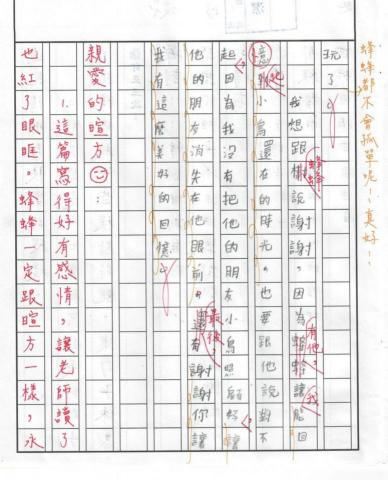 蜂蜂都不會孤單呢！真好！
玩了
我想跟樹說謝謝，因為
蜂蜂
有他，
我
憶小鳥還在的時光。也要跟他說對不
起因為我沒有把他的朋友小鳥照顧好讓
他的朋友消失在他眼前。還有謝謝你讓
最後，
我有這麼美好的回憶
親愛的暄方：
這篇寫得好有感情，讓老師讀了
也紅了眼眶。蜂蜂一定跟暄方一樣，永